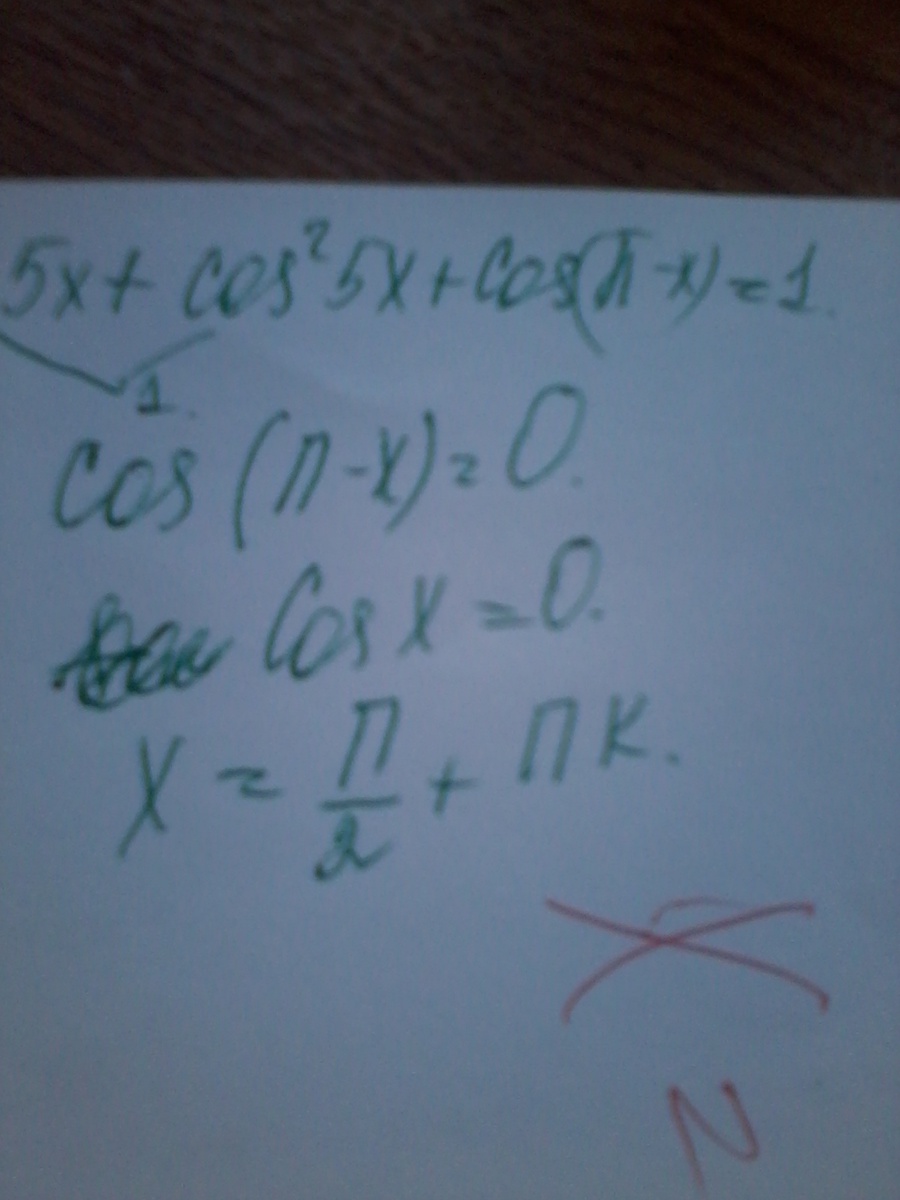 5x + cos²5x + cos(π-x) = 1.
1.
cos (π-x) = 0.
Cos x = 0.
x = π/2 + πk.